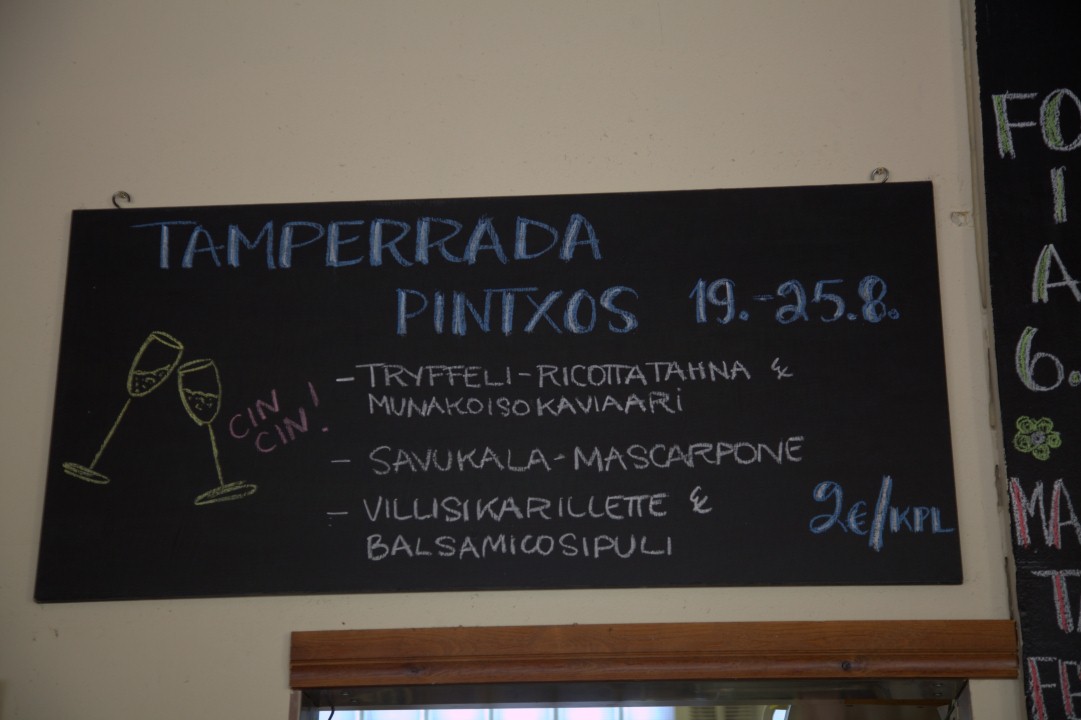 TAMPERRADA
PINTXOS 19.-25.8.
- TRYFFELI-RICOTTATAHNA &
MUNAKOISOKAVIAARI
- SAVUKALA-MASCARPONE
- VILLISIKARILLETTE &
BALSAMICOSIPULI
2€/KPL
CIN
CIN!
FO
I
A
6.
MA
T